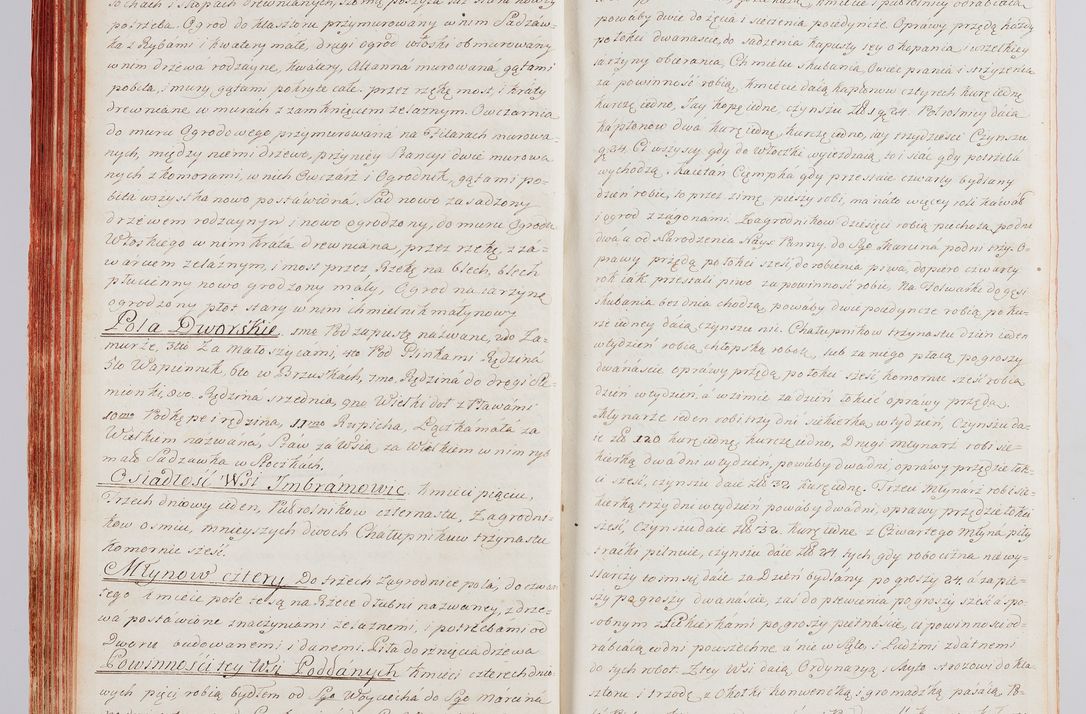 potrzeba. Ogrod do klasztoru przymurowany w nim Sadzaw-
ka z Rybami i kwatery małe, drugi ogrod włoski obmurowany
w nim drzewa rodzayne, kwatery, Altanna murowana gątami
pobita, i mury gątami pokryte całe, przez rzekę most, i kraty
drewniane w murach z zamknięciem żelaznym. Owczarnia
do muru Ogrodowego przymurowana na Filarach murowa-
nych, między niemi drzewo, przy niey Stancyi dwie murowa-
nych z komorami, w nich Owczarz i Ogrodnik, gątami po-
bita wszystka nowo postawiona. Sad nowo zasadzony
drzewem rodzaynym i nowo ogrodzony, do muru Ogrodu
Włoskiego w nim krata drewniana, przez rzekę z za-
warciem żelaznym, i most przez Rzekę na blech, blech
płucienny nowo grodzony mały, Ogrod na jarzynę
ogrodzony płot stary w nim chmielnik małynowy
Pola Dworskie, 1mo Pod zapustą nazwane, 2do Za-
murze, 3tio Za Małoszycami, 4to Pod Glinkami Rędzina
5to Wapiennik, 6to w Brzuskach, 7mo. Rędzina do drogi
mionki, 8vo. Rędzina srzednia, 9no Wielki doł z Stawami
10mo Podkępie i rędzina, 11mo Rupicha, Łączka mała za
Wielkim nazwana, Staw za Wsią za Wielkiem w nim ryb
mało Sadzawka w Stoczkach.
Osiadłość Wsi Jmbramowic. Kmieci pięciu,
Trzech dniowy ieden, Pułrolnikow czternastu, Zagrodni-
kow osmiu, mnieyszych dwoch Chałupnikow trzynastu
komornic sześć.
Młynow cztery Do trzech Zagrodnice pola, do czwar-
tego kmiece pole są na Rzece Dłubni nazwaney, z drze-
wa postawione z naczyniami żelaznemi, i potrzebami od
Dworu budowanemi i danemi. Piła do rznięcia drzewa
Powinności tey Wsi Poddanych kmieci czterech dnio-
wych pięci robią bydłem od Sgo Woyciecha do Sgo Marcina
powaby dwie do żęcia i sieczenia poiedyncze. Oprawy przędą każdy
po łokci dwanaście, do sadzenia kapusty iey okopania i wszelkiey
iarzyny obierania, Chmielu skubania, Owiec prania i strzyżenia
za powinność robią. Kmiecie daią kapłonow czterech kurę iednę
kurczę iedno, Jay kopę iednę, czynszu Zł 19 24. Połrolnicy daią
kapłonow dwa kurę iednę, kurczę iedno, iay trzydzieści Czynszu
g 24. Ci wszyscy gdy do włoczki wyieżdzaią, to i siać gdy potrzeba
wychodzą. Kaietan Ciempka gdy przestaie czwarty bydlany
dzień robić, to przez zimę pieszy robi, ma nato więcey roli kawał
i ogrod z zagonami. Zagrodnikow dziesięci robią piechotą po dni
dwa, a od Narodzenia Nayś: Panny, do Sgo Marcina po dni trzy. O-
prawy przędą po łokci sześć, do robienia piwa, dopiero czwarty
rok iak przestali piwo za powinność robić. Na Folwarki do gęsi
skubania bez dnia chodzą, powaby dwie poiedyncze robią po ku-
rze iedney daią, czynszu nic. Chałupnikow trzynastu dzień ieden
w tydzień robią chłopską robotę, lub za niego płacą po groszy
dwanaście oprawy przędą po łokci sześć, komornic sześć robią
dzień w tydzień, a w zimie za dzień łokieć oprawy przędą.
Młynarz ieden robi trzy dni siekierką w tydzień, Czynszu da-
ie Zł 120 kurę iednę, kurczę iedno. Drugi Młynarz robi sie-
kierką dwa dni w tydzień, powaby dwa dni, oprawy przędzie łok-
ci sześć, czynszu daie Zł 32. kurę iednę. Trzeci Młynarz robi sie-
kierką trzy dni w tydzień powaby dwa dni, oprawy przędzie łokci
sześć, Czynszu daie Zł 32. kurę iednę. z Czwartego Młyna piły
traćki pilnuie, czynszu daie Zł 24. tych, gdy robocizna nie wy-
starczy to im się daie za Dzień bydlany po groszy 24. a za pie-
szy po groszy dwanaście, zaś do plewienia po groszy sześć a spo-
sobnym z Siekierkami po groszy pietnaście, a powinność od-
rabiaią w dni powszednie, a nie w Sęto i Ludźmi zdatnemi
do tych robot. Z tey Wsi daią Ordynaryą i Myto strożowi do kla-
sztoru i trzodę z Okolki konwencką i gromadzką pasaią. Po-